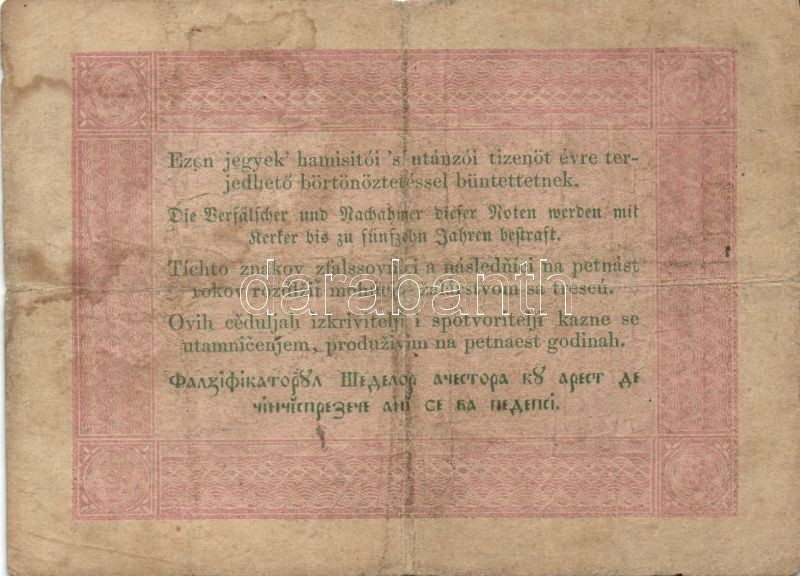 Ezen jegyek' hamisitói 's utánzói tizenöt évre ter-
jedhető börtönöztetéssel büntettetnek.
Die Verfälscher und Nachahmer dieser Noten werden mit
Kerker bis zu fünfzehn Jahren bestraft.
Tíchto znakov a na petnást
rokov sa trescú.
darabanth
Ovih cĕduljah izkrivitelji i spotvoritelji kazne se
utamničenjem, produživim na petnaest godinah.
Фалꙁіфікаторꙋл Шеделор ачестора кꙋ арест де
чінчіспреꙁече ані се ва педепсі.